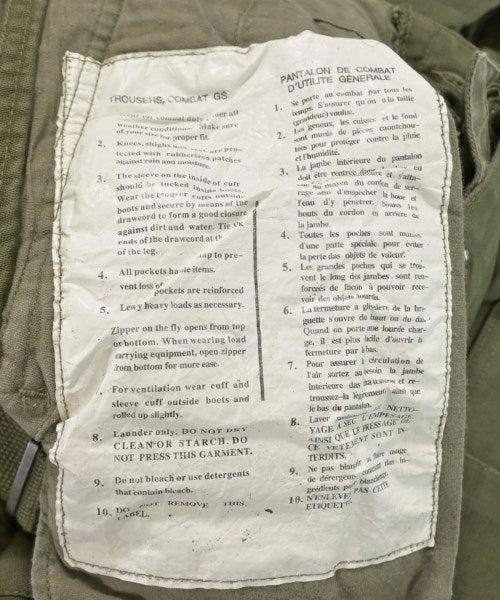 TROUSERS, COMBAT GS
weather conditions. Make sure
of your size for proper fit.
2. Knees, thighs are pro-
tected with rubberized patches
against rain and moisture.
3. The sleeve on the inside of cuff
should be tucked inside boots.
Wear the trouser cuffs outside
boots and secure by means of the
drawcord to form a good closure
against dirt and water. Tie
ends of the drawcord at th
of the leg.
flap to pre-
4. All pockets have items.
vent loss of
pockets are reinforced
5. Leg heavy loads as necessary.
Zipper on the fly opens from top
or bottom. When wearing load
carrying equipment, open zipper
from bottom for more ease.
For ventilation wear cuff and
sleeve cuff outside boots and
rolled up slightly.
8. Launder only. DO NOT DRY
CLEAN OR STARCH. DO
NOT PRESS THIS GARMENT.
9. Do not bleach or use detergents
that contain bleach.
10. DO NOT REMOVE THIS
LABEL.
PANTALON DE COMBAT
D'UTILITÉ GÉNÉRALE
1. Se porte au combat par tous les
temps. S'assurer qu'on a la taille
(grandeur) voulue.
2. Les genoux, les cuisses et le fond
sont munis de pièces caoutchou-
tées pour protéger contre la pluie
et l'humidité.
3. La jambe intérieure du pantalon
doit être rentrée dans et s'atta-
au moyen du cordon de ser-
rage afin d'empêcher la boue et
l'eau d'y pénétrer. Nouez les
bouts du cordon en arrière de
la jambe.
4. Toutes les poches sont munies
d'une patte spéciale pour éviter
la perte des objets de valeur.
5. Les grandes poches qui se trou-
vent le long des jambes sont ren-
forcées de façon à pouvoir rece-
voir des objets lourds.
6. La fermeture à glissière de la bra-
guette s'ouvre du haut ou du bas.
Quand on porte une lourde char-
ge, il est plus facile d'ouvrir la
fermeture par le bas.
7. Pour assurer la circulation de
l'air sortez au besoin la jambe
intérieure des chaussures et re-
troussez-la légèrement ainsi que
le bas du pantalon.
8. Laver NETTO-
YAGE À SEC L'EMPESAGE
AINSI QUE LE PRESSAGE DE
CE VÊTEMENT SONT IN-
TERDITS.
9. Ne pas blanchir ni faire usage
de détergents contenant des in-
grédients pour blanchissage.
10. N'ENLEVEZ PAS CETTE
ÉTIQUETTE.